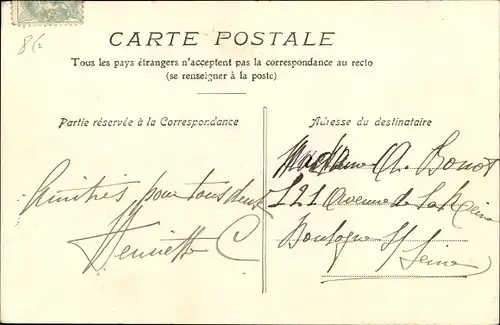 86
CARTE POSTALE
Tous les pays étrangers n'acceptent pas la correspondance au recto
(se renseigner à la poste)
Partie réservée à la Correspondance
Adresse du destinataire
Amitiés pour tous deux
Henriette C
Madame A. Bonot
121 Avenue de la Reine
Boulogne s/ Seine